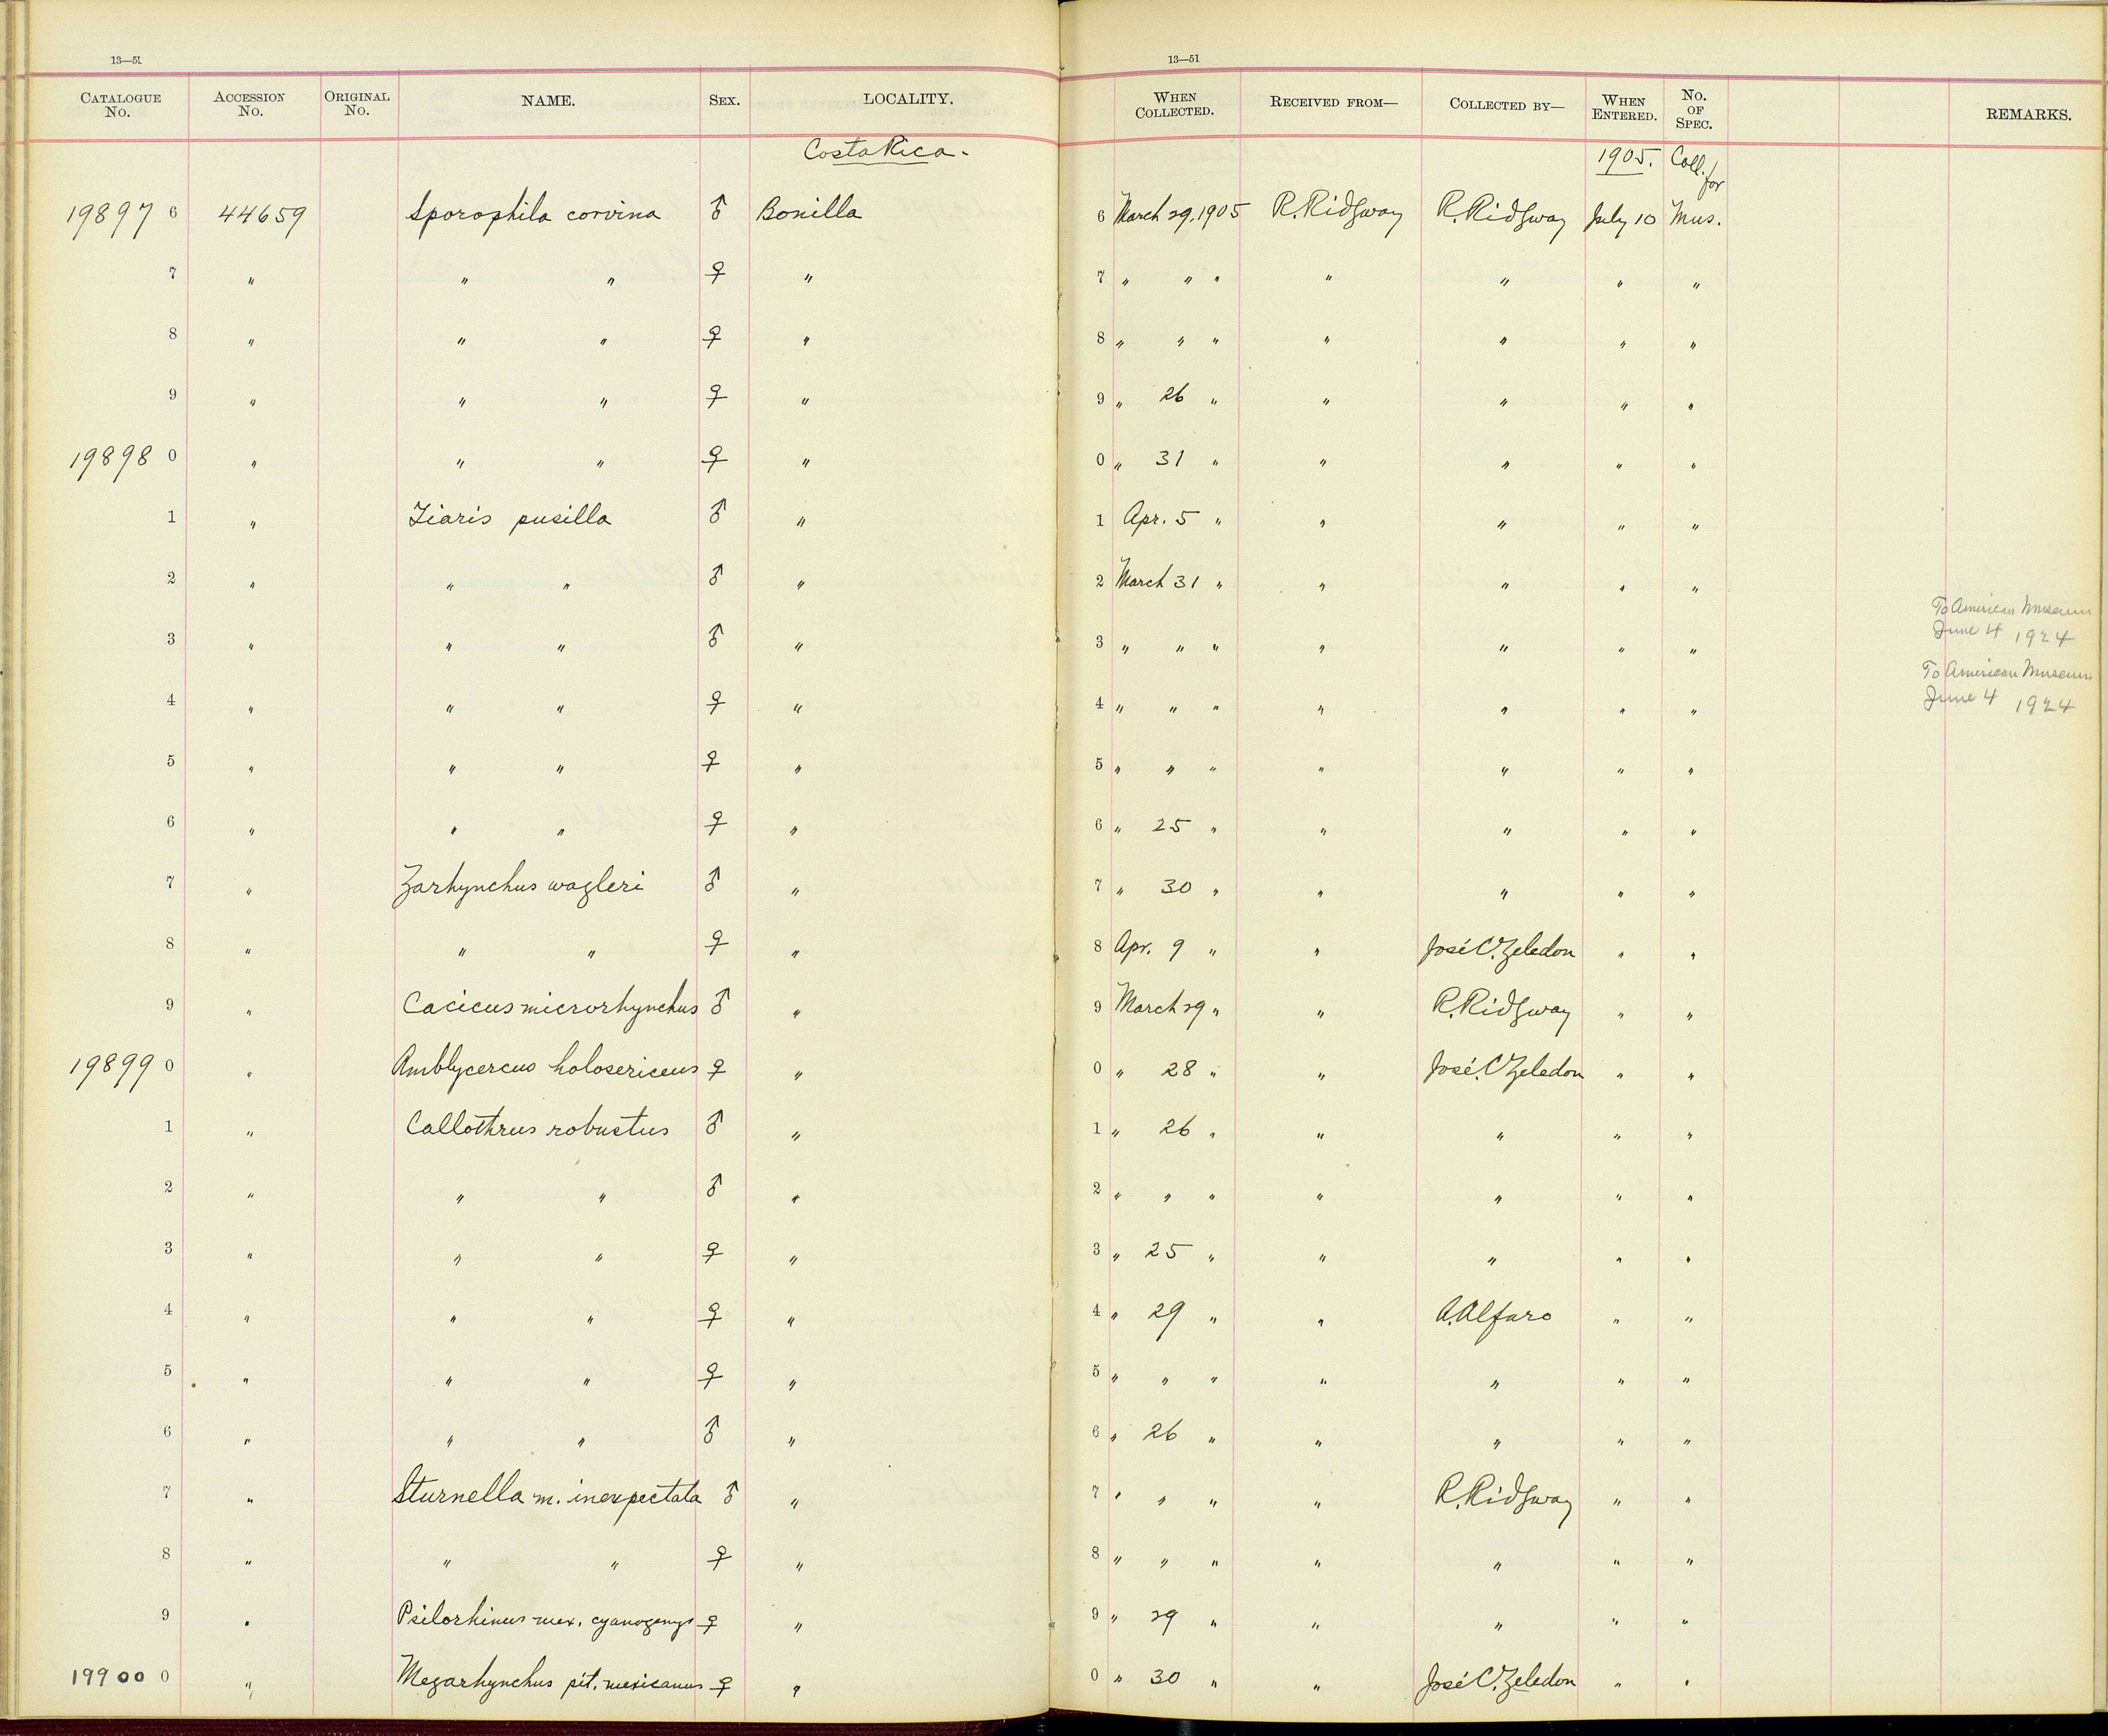 13—51 13—51
CATALOGUE No. ACCESSION No. ORIGINAL No. NAME. SEX. LOCALITY. WHEN COLLECTED. RECEIVED FROM— COLLECTED BY— WHEN ENTERED. No. OF SPEC. REMARKS.
Costa Rica. 1905. Coll. for
19897 6 44659 Sporophila corvina ♂ Bonilla 6 March 29, 1905 R. Ridgway R. Ridgway July 10 Mus.
7 " " " ♀ " 7 " " " " " " "
8 " " " ♀ " 8 " " " " " " "
9 " " " ♀ " 9 " 26 " " " " "
19898 0 " " " ♀ " 0 " 31 " " " " "
1 " Tiaris pusilla ♂ " 1 Apr. 5 " " " " "
2 " " " ♂ " 2 March 31 " " " " "
3 " " " ♂ " 3 " " " " " " " To American Museum June 4 1924
4 " " " ♀ " 4 " " " " " " " To American Museum June 4 1924
5 " " " ♀ " 5 " " " " " " "
6 " " " ♀ " 6 " 25 " " " " "
7 " Zarhynchus wagleri ♂ " 7 " 30 " " " " "
8 " " " ♀ " 8 Apr. 9 " " José C. Zeledon " "
9 " Cacicus microrhynchus ♂ " 9 March 29 " " R. Ridgway " "
19899 0 " Amblycercus holosericeus ♀ " 0 " 28 " " José. C Zeledon " "
1 " Callothrus robustus ♂ " 1 " 26 " " " " "
2 " " " ♂ " 2 " " " " " " "
3 " " " ♀ " 3 " 25 " " " " "
4 " " " ♀ " 4 " 29 " " A. Alfaro " "
5 " " " ♀ " 5 " " " " " " "
6 " " " ♂ " 6 " 26 " " " " "
7 " Sturnella m. inexpectata ♂ " 7 " " " " R. Ridgway " "
8 " " " ♀ " 8 " " " " " " "
9 " Psilorhinus mex. cyanogenys ♀ " 9 " 29 " " " " "
19900 0 " Megarhynchus pit. mexicanus ♀ " 0 " 30 " " José C. Zeledon " "